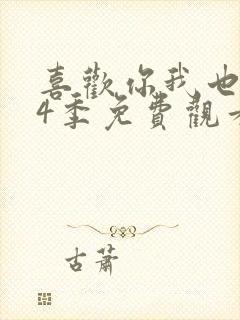 喜歡你我也
4季免費觀看
古蕭